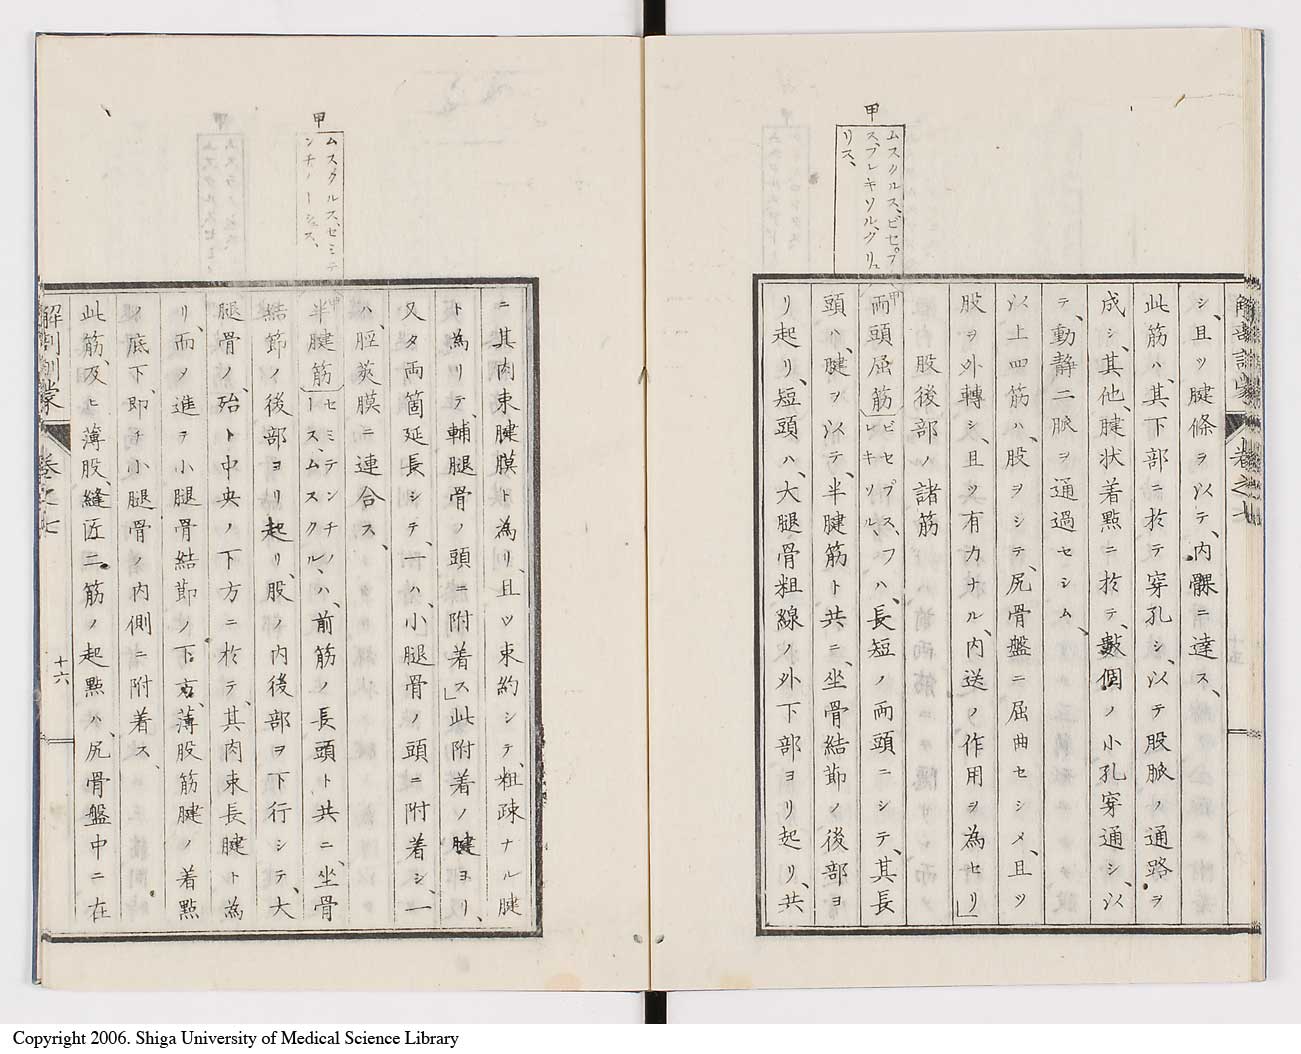 甲
ムスクルス、ビセプ
ス、フレキソル、クリュ
リス、
シ、且ツ腱條ヲ以テ、内髁ニ達ス、
此筋ハ、其下部ニ於テ穿孔シ、以テ股脈ノ通路ヲ
成シ、其他、腱状着點ニ於テ、數個ノ小孔穿通シ、以
テ、動静二脈ヲ通過セシム、
以上四筋ハ、股ヲシテ、尻骨盤ニ屈曲セシメ、且ツ
股ヲ外轉シ、且ツ有力ナル、内送ノ作用ヲ為セリ」
股後部ノ諸筋
両頭屈筋甲〔ビセプス、フレキソル、〕ハ、長短ノ両頭ニシテ、其長
頭ハ、腱ヲ以テ、半腱筋ト共ニ、坐骨結節ノ後部ヨ
リ起リ、短頭ハ、大腿骨粗線ノ外下部ヨリ起リ、共
解剖訓蒙 卷之七
甲
ムスクルス、セミテ
ンチノーシュス、
ニ其肉束腱膜ト為リ、且ツ束約シテ、粗疎ナル腱
ト為リテ、輔腿骨ノ頭ニ附着ス」此附着ノ腱ヨリ、
又タ両箇延長シテ、一ハ、小腿骨ノ頭ニ附着シ、一
ハ、脛莢膜ニ連合ス、
半腱筋甲〔セミテンチノース、ムスクル、〕ハ、前筋ノ長頭ト共ニ、坐骨
結節ノ後部ヨリ起リ、股ノ内後部ヲ下行シテ、大
腿骨ノ、殆ト中央ノ下方ニ於テ、其肉束長腱ト為
リ、而メ進テ小腿骨結節ノ下方、薄股筋腱ノ着點
ノ底下、即チ小腿骨ノ内側ニ附着ス、
此筋、及ヒ薄股、縫匠二筋ノ起點ハ、尻骨盤中ニ在
解剖訓蒙 卷之七 十六
Copyright 2006. Shiga University of Medical Science Library